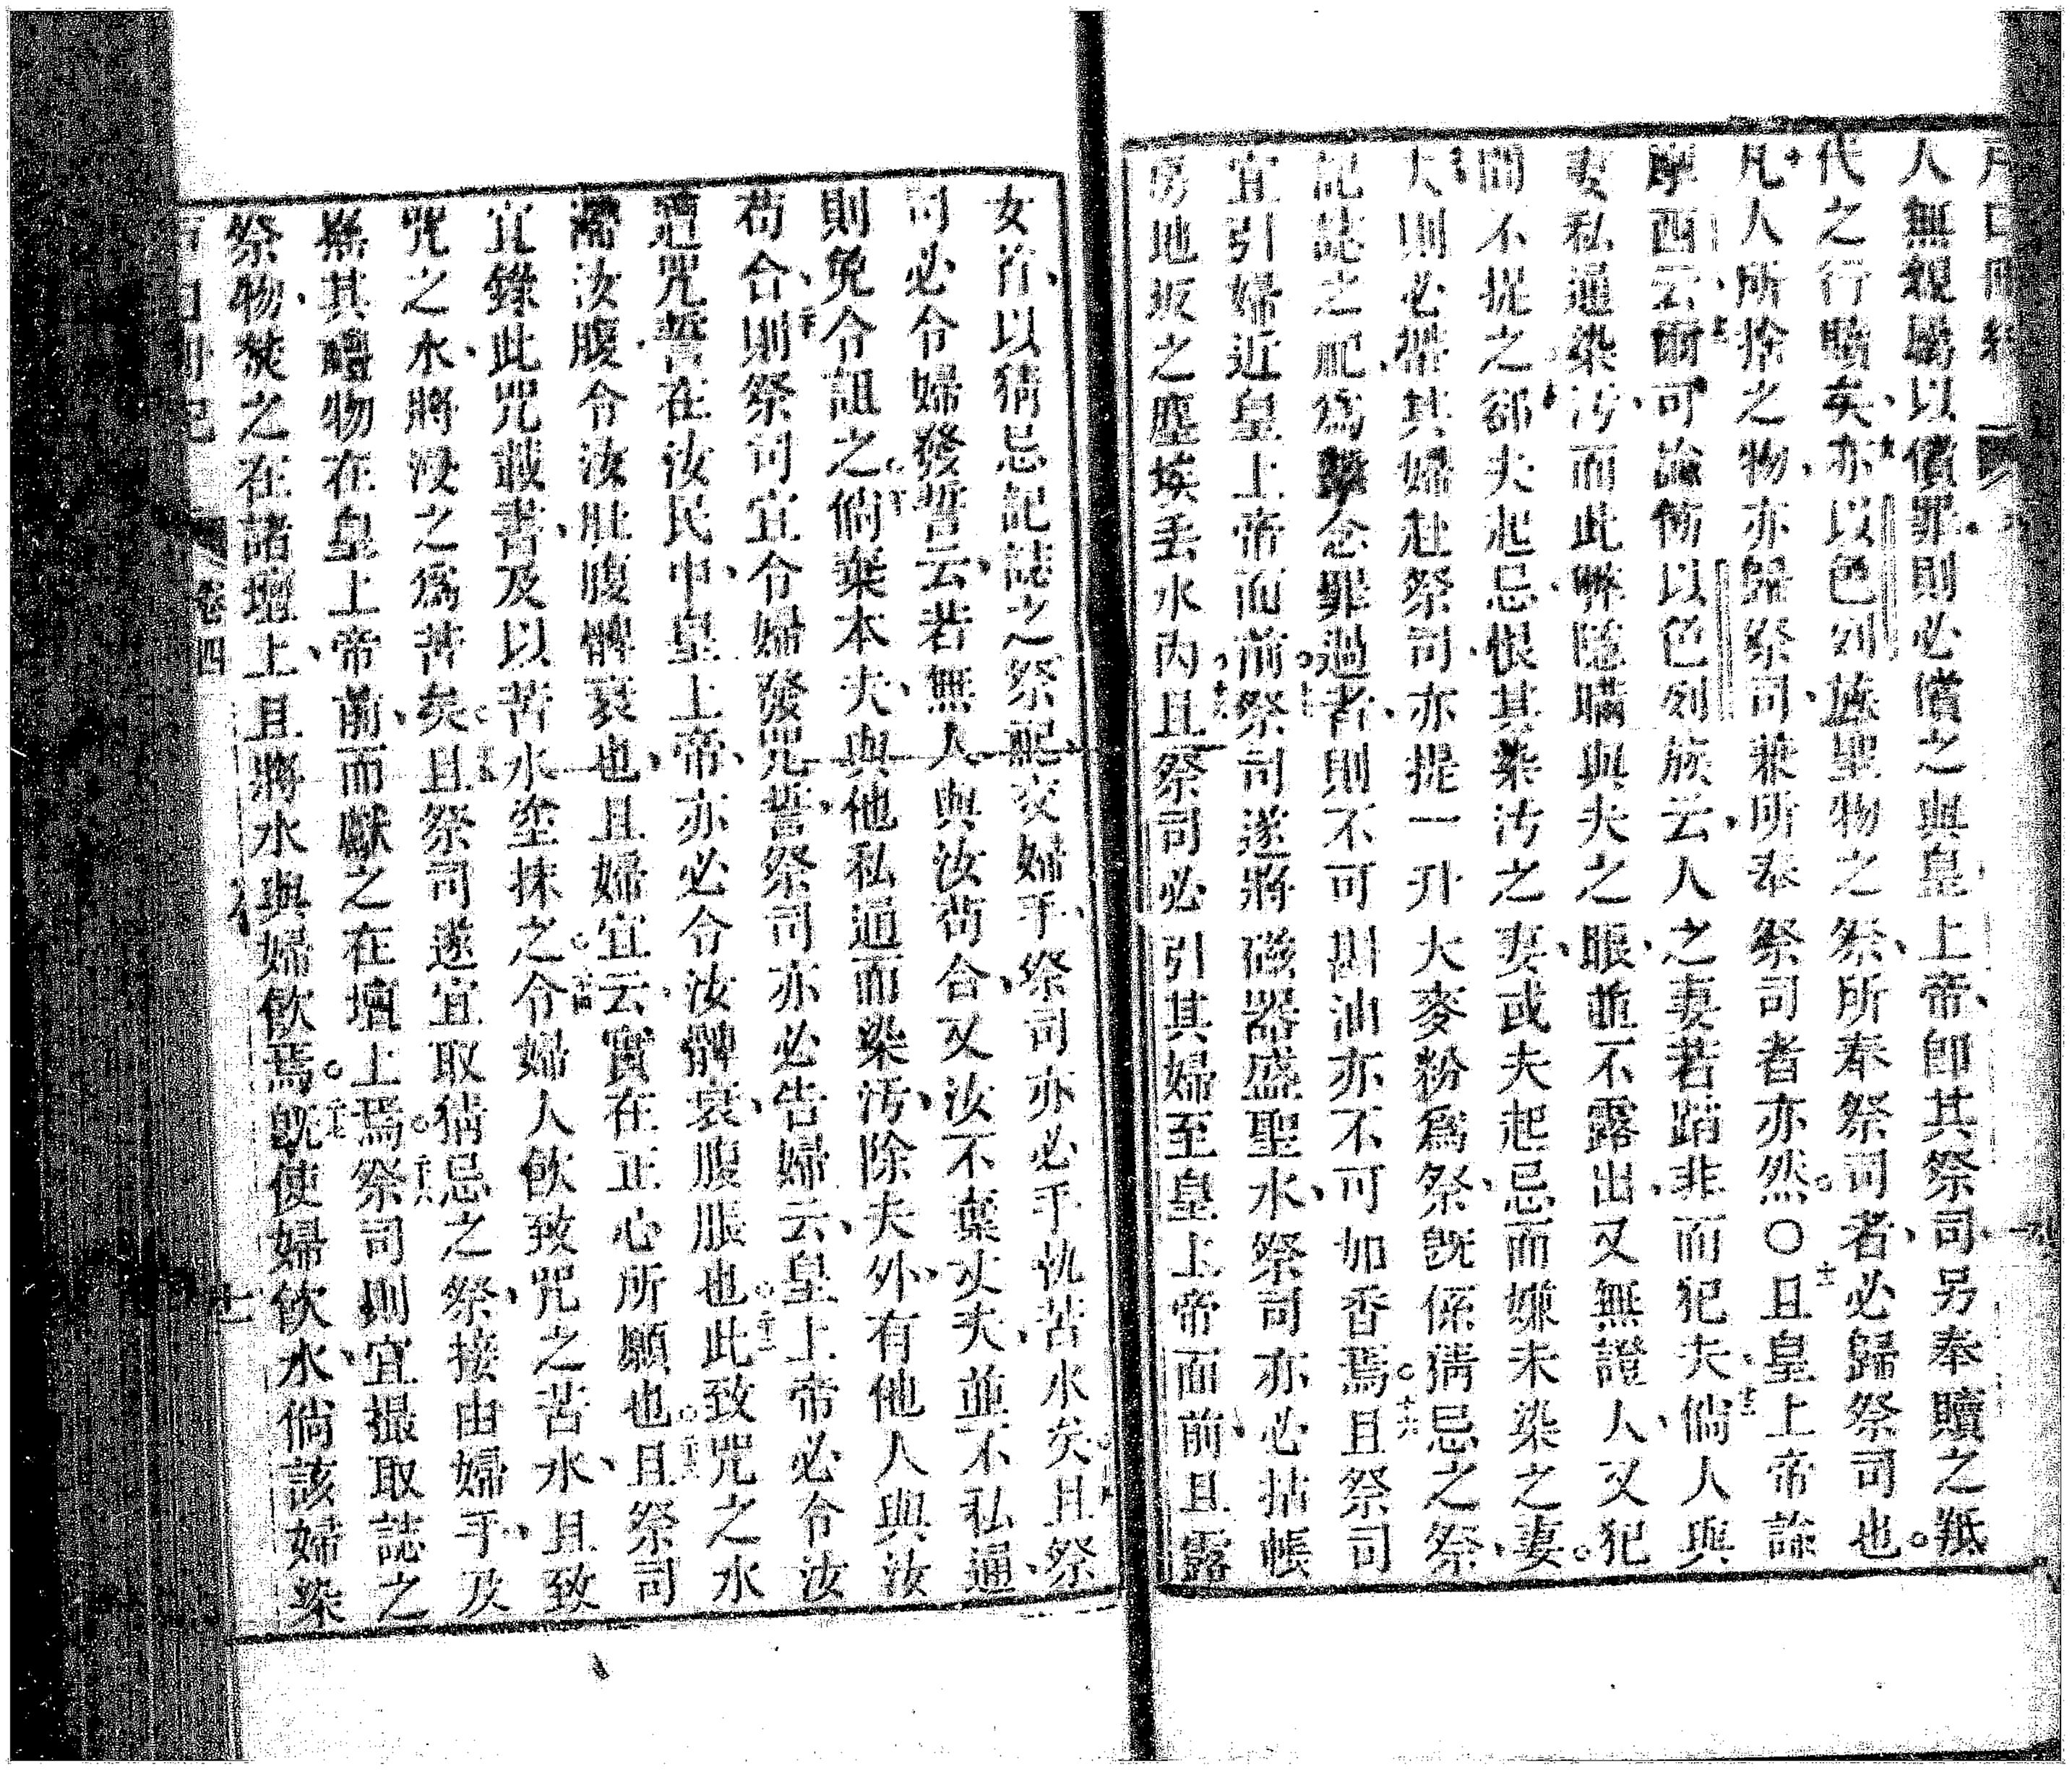 人無親屬以償罪則必償之與皇上帝卽其祭司另奉贖之羝
代之行贖矣亦以色列族聖物之祭所奉祭司者必歸祭司也
凡人所捨之物亦歸祭司兼所奉祭司者亦然〇且皇上帝諭
摩西云爾可諭飭以色列族云人之妻若蹈非而犯夫倘人與
妻私通染汚而此弊隱瞞與夫之眼並不露出又無證人又犯
間不捉之郤夫起忌恨其染汚之妻或夫起忌而嫌未染之妻
夫則必攜其婦赴祭司亦提一升大麥粉爲祭旣係猜忌之祭
記誌之祀爲念罪過者則不可斟油亦不可加香焉且祭司
宜引婦近皇上帝面前祭司遂將磁器盛聖水祭司亦必拈帳
房地坂之塵埃丟水內且祭司必引其婦至皇上帝面前且露
女首以猜忌記誌之祭祀交婦手祭司亦必手執苦水矣且祭
司必令婦發誓云若無人與汝苟合又汝不棄丈夫並不私通
則免令詛之倘棄本夫與他私通而染汚除夫外有他人與汝
苟合則祭司宜令婦發咒誓祭司亦必告婦云皇上帝必令汝
遭咒誓在汝民中皇上帝亦必令汝髀衰腹脹也此致咒之水
汝腹令汝肚腹髀衰也且婦宜云實在正心所願也且祭司
宜錄此咒載書及以苦水塗抹之令婦人飲致咒之苦水且致
咒之水將浸之爲苦矣且祭司遂宜取猜忌之祭接由婦手及
搖其禮物在皇上帝前而獻之在壇上焉祭司則宜撮取誌之
祭物焚之在諸壇上且將水與婦飲焉旣使婦飲水倘該婦染
卷四